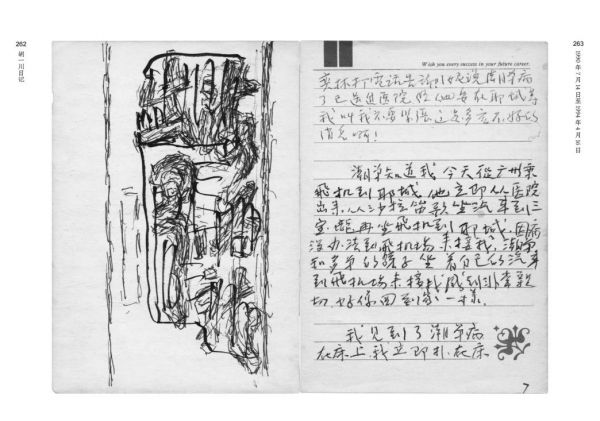 262
胡一川日记
263
1990年7月14日至1994年4月16日
Wish you every success in your future career.
打电话告诉我 病
了已送进医院
我叫我不要紧张这是多么不好的
消息啊!
潮弟知道我今天从广州乘
飞机到耶城,他立即从医院
出来,从 坐汽车到三
宝垄再坐飞机到耶城,因病
没办法到飞机场来接我,潮弟
和 弟的孩子坐着自己的汽车
到飞机场来接我,感到非常亲
切,好像回到家一样。
我见到了潮弟病
在床上,我立即扑在床
7